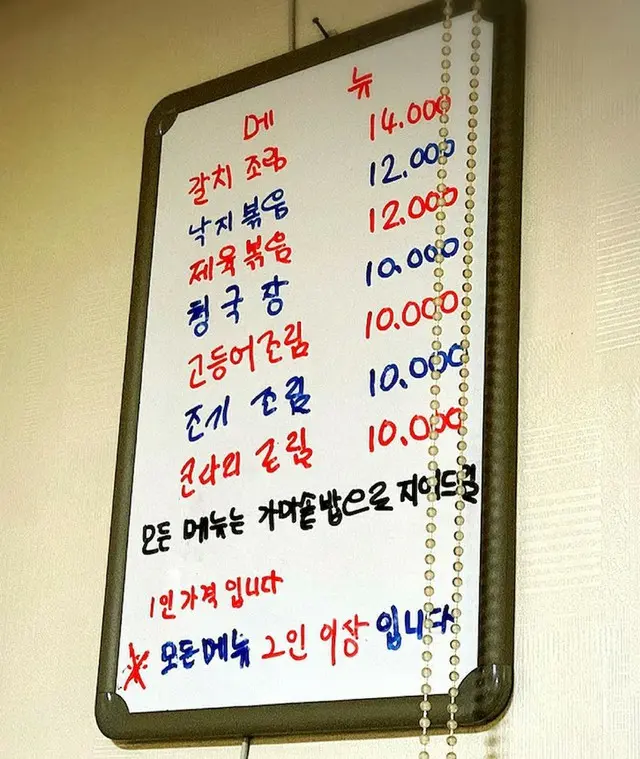 메 뉴
갈치 조림 14.000
낙지 볶음 12.000
제육볶음 12.000
청국장 10.000
고등어조림 10.000
조기 조림 10.000
코다리 조림 10.000
모든 메뉴는 가마솥밥으로 지어드림
1인가격 입니다
※ 모든메뉴 2인 이상 입니다